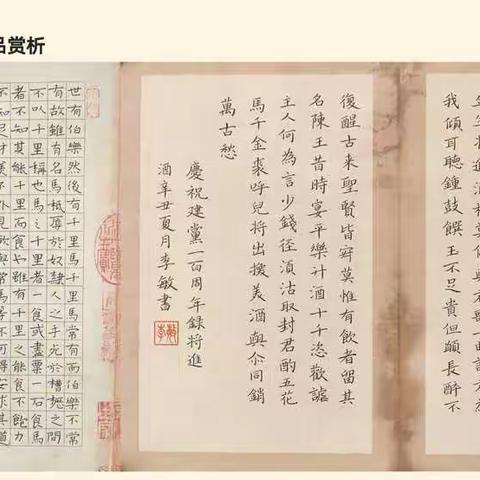 品赏析
我傾耳聽鐘鼓饌玉不足貴但願長醉不
復醒古来聖賢皆寂莫惟有飲者留其
名陳王昔時宴平樂斗酒十千恣歡謔
主人何為言少錢徑須沽取封君酌五花
馬千金裘呼兒將出換美酒與尒同銷
萬古愁
慶祝建黨一百周年錄將進
酒辛丑夏月李敏書
世有伯樂然後有千里馬常有而伯樂不常
有故雖有名馬祇辱於奴隸人之手死於槽櫪之間
不以千里稱也馬之千里者一食或盡粟一石食馬
者不知其能千里而食也雖有千里之能食不飽力